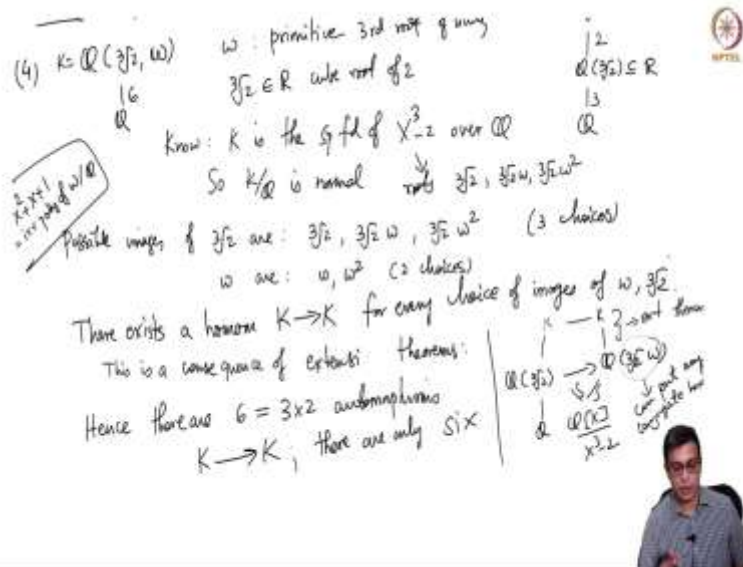 (4) K = Q(∛2, ω)
|6
Q
ω : primitive 3rd root of unity
∛2 ∈ R cube root of 2
|2
Q(∛2) ⊆ R
|3
Q
NPTEL
Know: K is the fd of X³-2 over Q
So K/Q is normal roots ∛2, ∛2ω, ∛2ω²
x²+x+1
= irr poly of ω/Q
Possible images of ∛2 are: ∛2, ∛2ω, ∛2ω² (3 choices)
ω are: ω, ω² (2 choices)
There exists a homom K→K for every choice of images of ω, ∛2.
This is a consequence of extensi theorems:
Hence there are 6 = 3x2 automorphisms
K→K ; there are only six
K — K } → ext
Q(∛2) → Q(∛2 ω)
Q
Q[X]
X³-2
can put any
conjugate